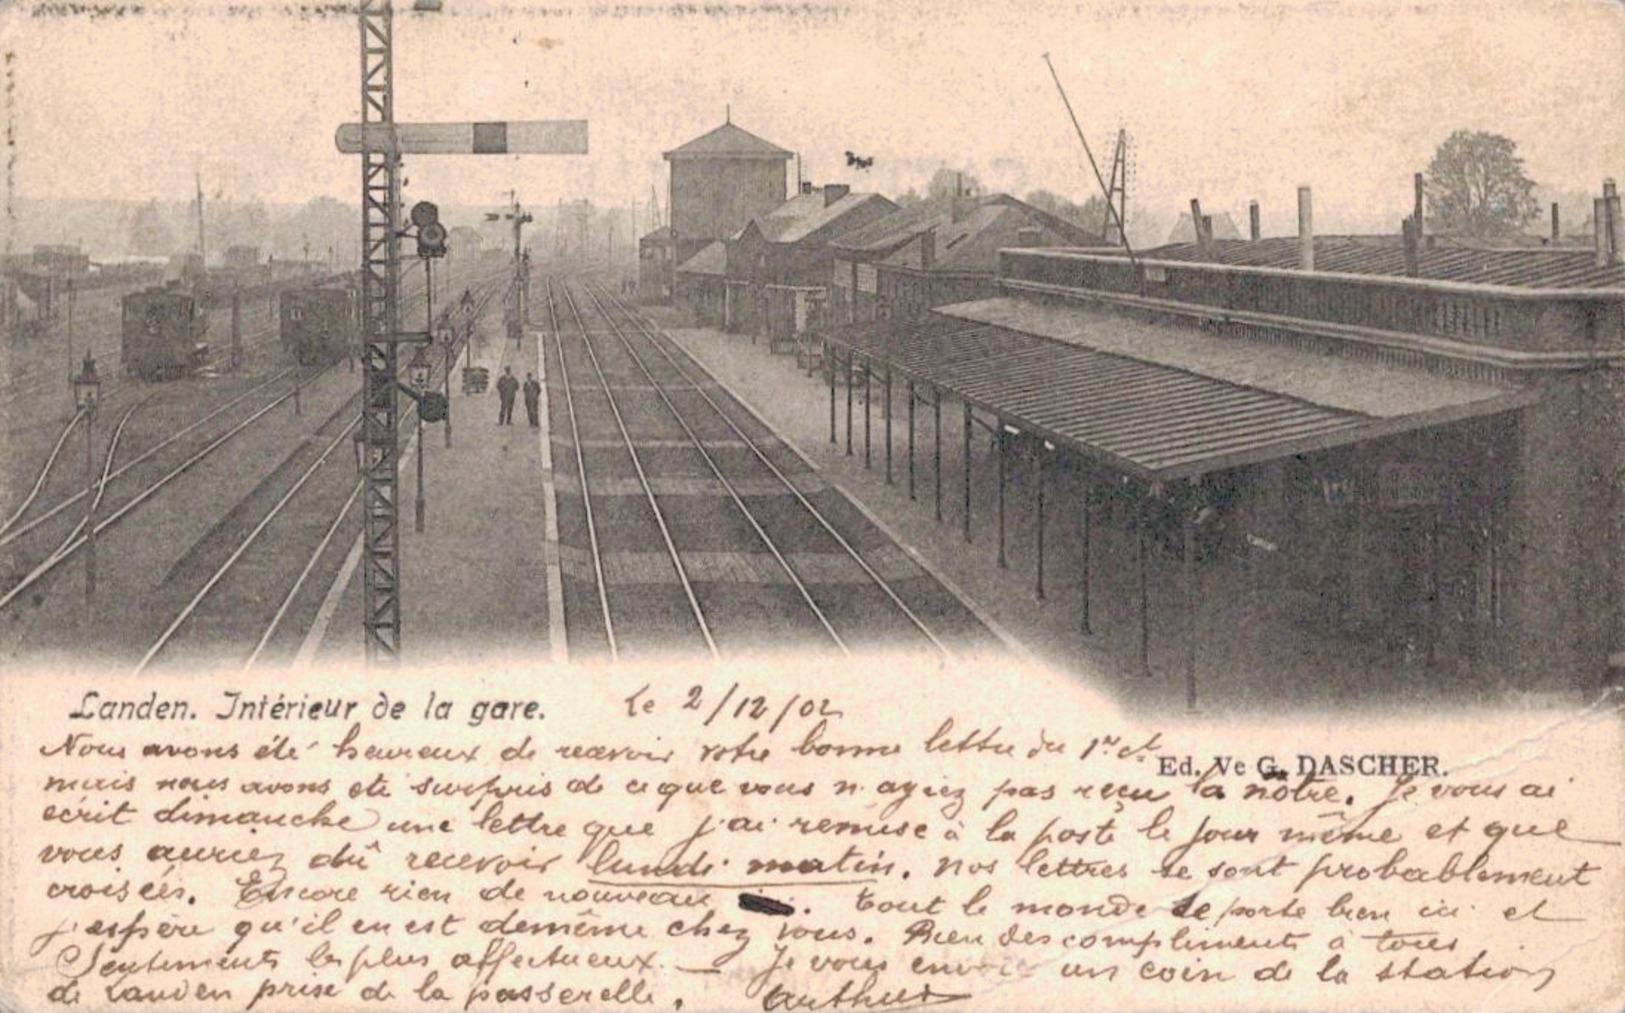 Landen. Intérieur de la gare.
Le 2/12/02
Nous avons été heureux de recevoir votre bonne lettre du 1er ct
Ed. Ve G. DASCHER.
mais nous avons été surpris de ce que vous n'ayiez pas reçu la nôtre. Je vous ai
écrit dimanche une lettre que j'ai remise à la poste le jour même et que
vous auriez dû recevoir lundi matin. Nos lettres se sont probablement
croisées. Encore rien de nouveau. Tout le monde se porte bien ici et
j'espère qu'il en est de même chez vous. Bien des compliments à tous
Sentiments les plus affectueux. — Je vous envoie un coin de la station
de Landen prise de la passerelle. Arthur